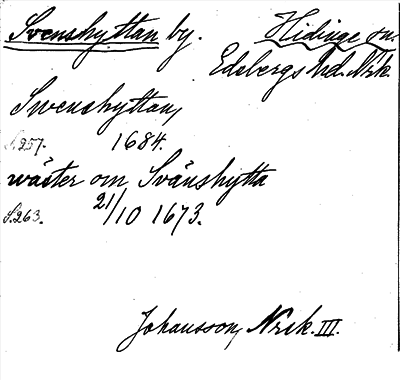 Svenshyttan by. Hidinge sn.
Edsbergs hd. Nrk.
Swenshyttan,
S. 257. 1684.
wäster om Svänshytta
S. 263. 21/10 1673.
Johansson, Nrik. III.